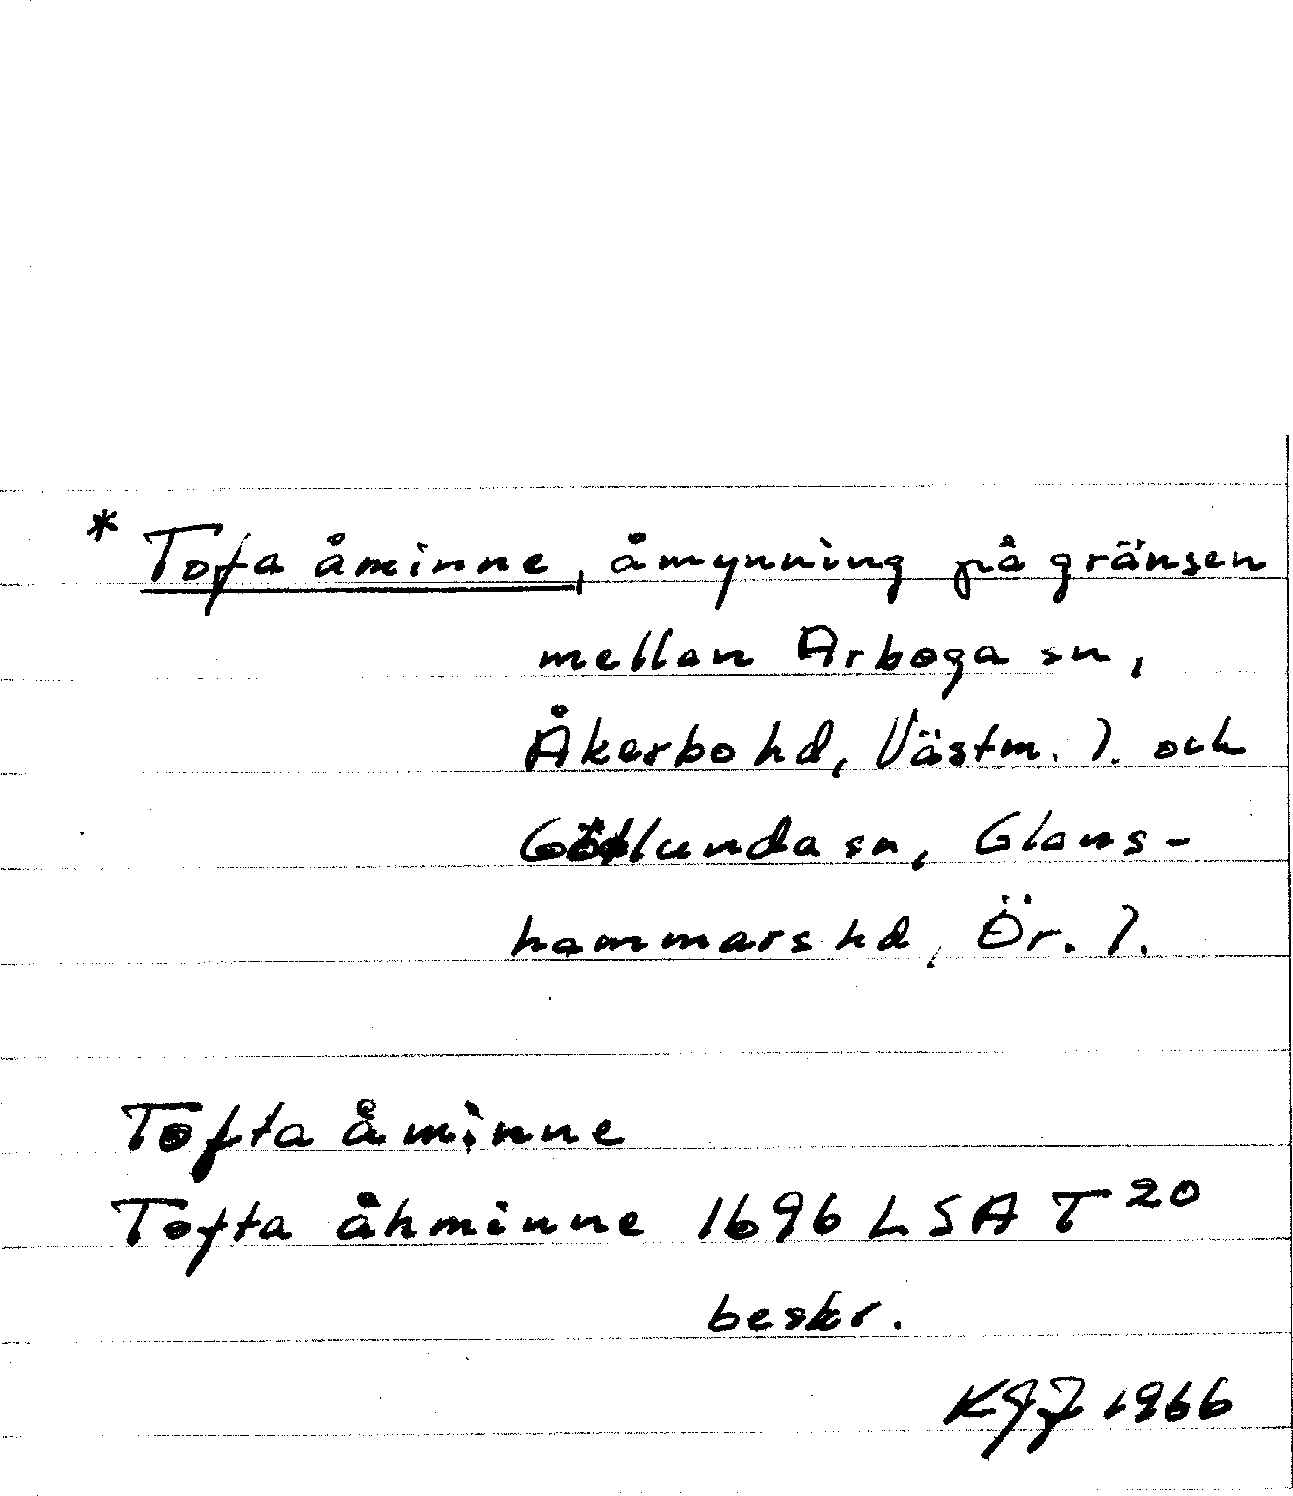 * Tofa åminne, åmynning på gränsen
mellan Arboga sn,
Åkerbo hd, Västm. l. och
Götlunda sn, Glans-
hammars hd, Ör. l.
Tofta åminne
Tofta åhminne 1696 LSA T 20
beskr.
1966